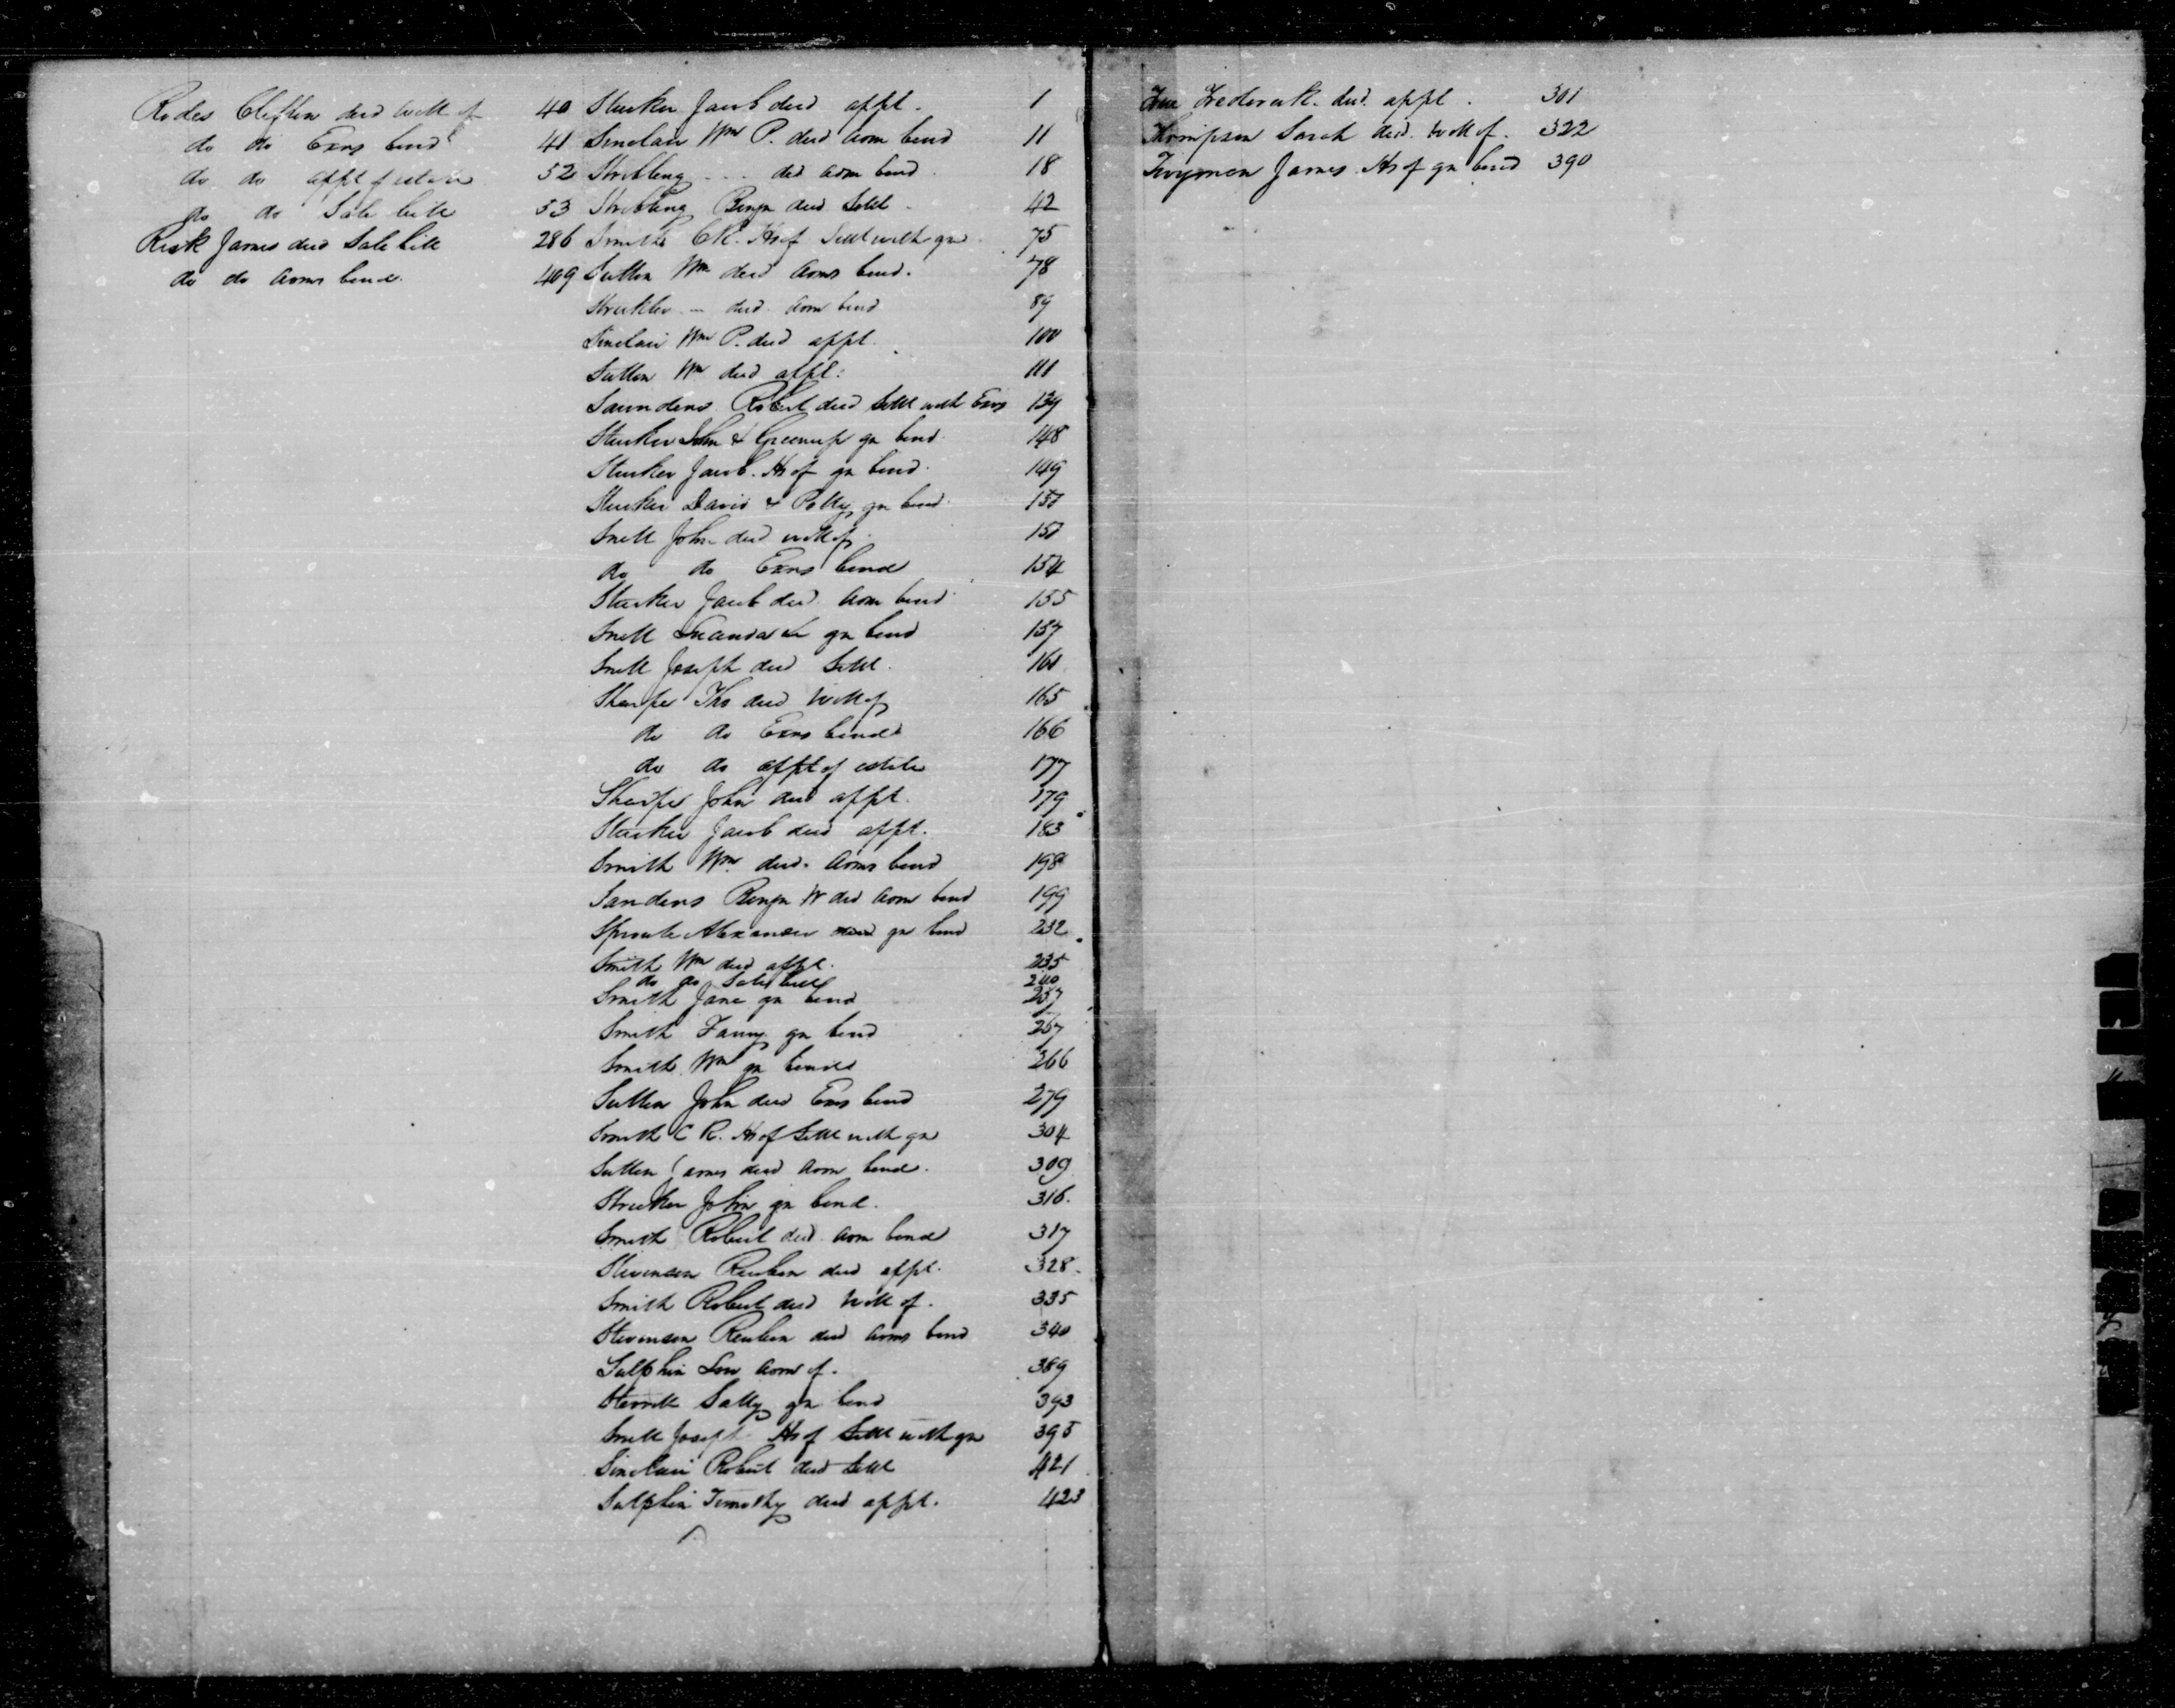 Rodes Clifton decd will of 40
do do Exrs bond 41
do do appt of estate 52
do do Sale bill 53
Risk James decd Sale bill 286
do do Adms bond. 409
Stucker Jacob decd appt. 1
Sinclair Wm P. decd Adm bond 11
Stribling - - - decd adm bond. 18
Stribling Benjn decd Settl - 42
Smith CR. Hrs of Settl with gn 75
Sutton Wm decd Adms bond. 78
Strickler - decd Adm bond 89
Sinclair Wm P. decd appt. 100
Sutton Wm decd appt: 111
Saunders Robert decd Settl with Exrs 139
Stucker John & Greenup gn bond. 148
Stucker Jacob. Hrs of gn bond. 149
Stucker David & Polly gn bond.
Snell John decd will of.
do do Exrs bond 154
Stucker Jacob decd Adm bond 155
Snell gn bond 157
Snell Joseph decd Settl.
Sharpe Tho decd Will of 165
do do Exrs bond 166
do do appt of estate 177
Sharpe John decd appt. 179
Stucker Jacob decd appt. 183
Smith Wm decd. Adms bond 198
Sanders Benjn W decd Adm bond 199
Sproule Alexander gn bond 232
Smith Wm decd appt. 235
do do Sale bill 240
Smith Jane gn bond 257
Smith Fanny gn bond
Smith Wm gn bond 266
Sutton John decd Exrs bond 279
Smith C R. Hrs of Settl with gn 304
Sutton James decd Adm bond. 309
Strucker John gn bond. 316.
Smith Robert decd Adm bond 317
Stevenson Reuben decd appt. 328.
Smith Robert decd Will of. 335
Stevenson Reuben decd Adms bond 340
Sulphin Adm of. 389
Sally gn bond 393
Snell Joseph Hrs of Settl with gn 395
Sinclair Robert decd Settl 421
Sulphin Timothy decd appt. 423
Frederick. decd. appt. 301
Thompson Sarah decd. Will of. 322
Twyman James Hrs of gn bond 390